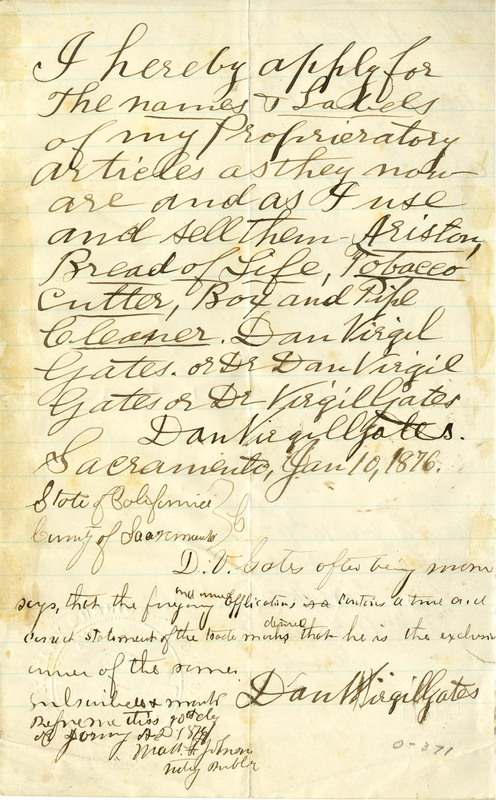 I hereby apply for
The names & Labels
of my Proprieratory
articles as they now
are and as I use
and sell them - Ariston,
Bread of Life, Tobacco
Cutter, Box and Pipe
Cleaner. Dan Virgil
Gates. or Dr Dan Virgil
Gates or Dr Virgil Gates
Dan Virgil Gates.
Sacramento, Jan 10, 1876.
State of California
County of Sacramento
D. V. Gates after being sworn
says, that the foregoing application contains a true and
correct statement of the trade marks claimed that he is the exclusive
owner of the same.
Dan Virgil Gates
subscribed & sworn to
before me this 10th day
of January A.D. 1876
Notary Public
0-371